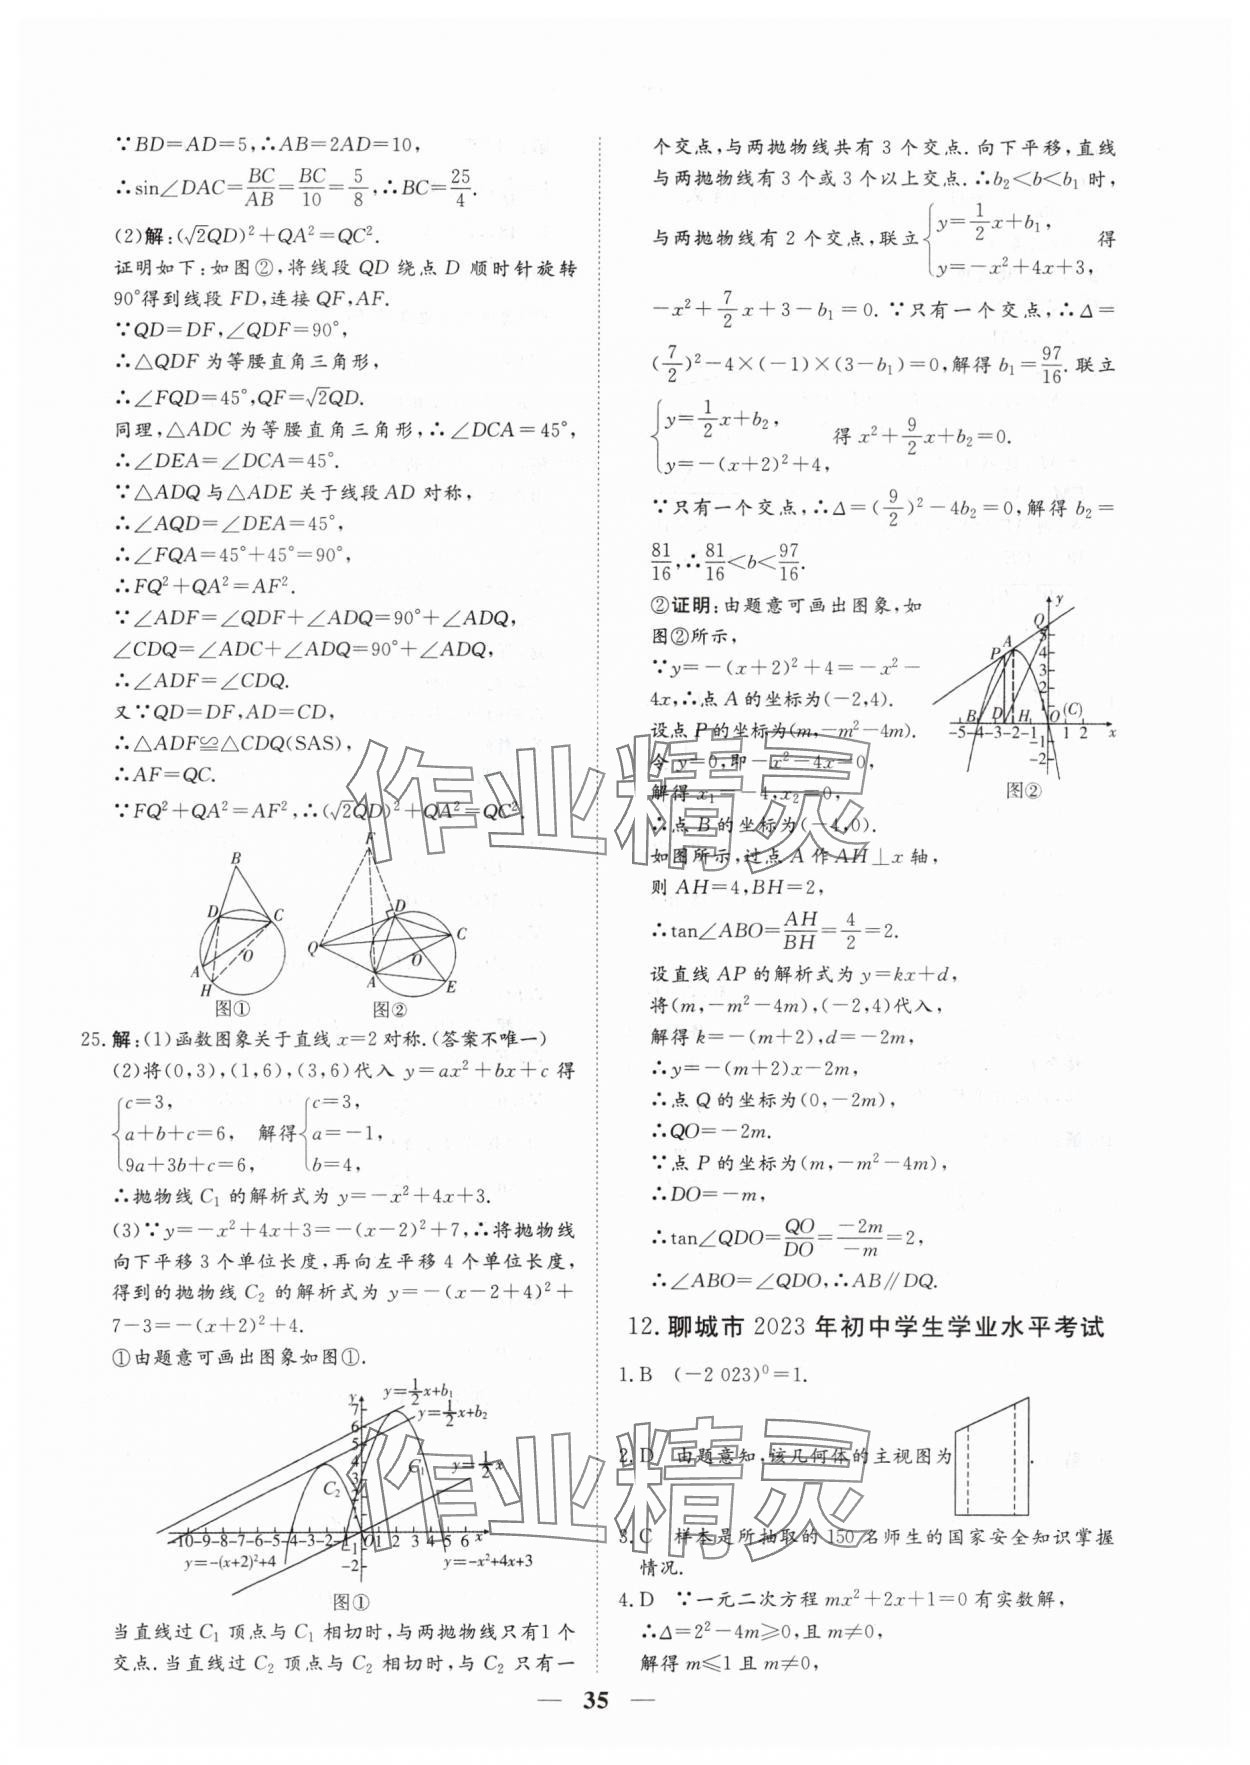 ∵BD=AD=5,∴AB=2AD=10,
∴sin∠DAC=BC/AB=BC/10=5/8,∴BC=25/4.
(2)解:(√2QD)²+QA²=QC².
证明如下:如图②,将线段 QD 绕点 D 顺时针旋转
90°得到线段 FD,连接 QF,AF.
∵QD=DF,∠QDF=90°,
∴△QDF 为等腰直角三角形,
∴∠FQD=45°,QF=√2QD.
同理,△ADC 为等腰直角三角形,∴∠DCA=45°,
∴∠DEA=∠DCA=45°.
∵△ADQ 与△ADE 关于线段 AD 对称,
∴∠AQD=∠DEA=45°,
∴∠FQA=45°+45°=90°,
∴FQ²+QA²=AF².
∵∠ADF=∠QDF+∠ADQ=90°+∠ADQ,
∠CDQ=∠ADC+∠ADQ=90°+∠ADQ,
∴∠ADF=∠CDQ.
又∵QD=DF,AD=CD,
∴△ADF≌△CDQ(SAS),
∴AF=QC.
∵FQ²+QA²=AF²,∴(√2QD)²+QA²=QC².
B D C O A H
图①
F D Q C O A E
图②
25.解:(1)函数图象关于直线 x=2 对称.(答案不唯一)
(2)将(0,3),(1,6),(3,6)代入 y=ax²+bx+c 得
{c=3, a+b+c=6, 9a+3b+c=6, 解得{c=3, a=-1, b=4,
∴抛物线 C₁ 的解析式为 y=-x²+4x+3.
(3)∵y=-x²+4x+3=-(x-2)²+7,∴将抛物线
向下平移 3 个单位长度,再向左平移 4 个单位长度,
得到的抛物线 C₂ 的解析式为 y=-(x-2+4)²+
7-3=-(x+2)²+4.
①由题意可画出图象如图①.
y=1/2x+b₁
y=1/2x+b₂
y=1/2x
C₂ C₁
-10-9-8-7-6-5-4-3-2-1 O 1 2 3 4 5 6 x
y=-(x+2)²+4
y=-x²+4x+3
图①
当直线过 C₁ 顶点与 C₁ 相切时,与两抛物线只有1 个
交点.当直线过 C₂ 顶点与 C₂ 相切时,与 C₂ 只有一
个交点,与两抛物线共有 3 个交点.向下平移,直线
与两抛物线有 3 个或 3 个以上交点.∴b₂<b<b₁ 时,
与两抛物线有 2 个交点,联立{y=1/2x+b₁, y=-x²+4x+3, 得
-x²+7/2x+3-b₁=0.∵只有一个交点,∴Δ=
(7/2)²-4×(-1)×(3-b₁)=0,解得 b₁=97/16.联立
{y=1/2x+b₂, y=-(x+2)²+4, 得 x²+9/2x+b₂=0.
∵只有一个交点,∴Δ=(9/2)²-4b₂=0,解得 b₂=
81/16,∴81/16<b<97/16.
②证明:由题意可画出图象,如
图②所示,
∵y=-(x+2)²+4=-x²-
4x,∴点 A 的坐标为(-2,4).
设点 P 的坐标为(m,-m²-4m).
令 y=0,即-x²-4x=0,
解得 x₁=-4,x₂=0,
∴点 B 的坐标为(-4,0).
y Q A P B D H O (C) x
-5-4-3-2-1 1 2
图②
如图所示,过点 A 作 AH⊥x 轴,
则 AH=4,BH=2,
∴tan∠ABO=AH/BH=4/2=2.
设直线 AP 的解析式为 y=kx+d,
将(m,-m²-4m),(-2,4)代入,
解得 k=-(m+2),d=-2m,
∴y=-(m+2)x-2m,
∴点 Q 的坐标为(0,-2m),
∴QO=-2m.
∵点 P 的坐标为(m,-m²-4m),
∴DO=-m,
∴tan∠QDO=QO/DO=-2m/-m=2,
∴∠ABO=∠QDO,∴AB∥DQ.
12.聊城市 2023 年初中学生学业水平考试
1.B (-2 023)⁰=1.
2.D 由题意知,该几何体的主视图为 .
3.C 样本是所抽取的 150 名师生的国家安全知识掌握
情况.
4.D ∵一元二次方程 mx²+2x+1=0 有实数解,
∴Δ=2²-4m≥0,且 m≠0,
解得 m≤1 且 m≠0,
— 35 —
作业精灵
作业精灵